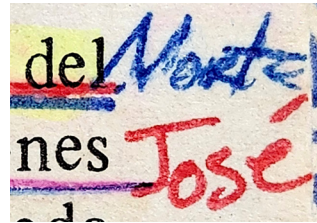 del Marta
nes José